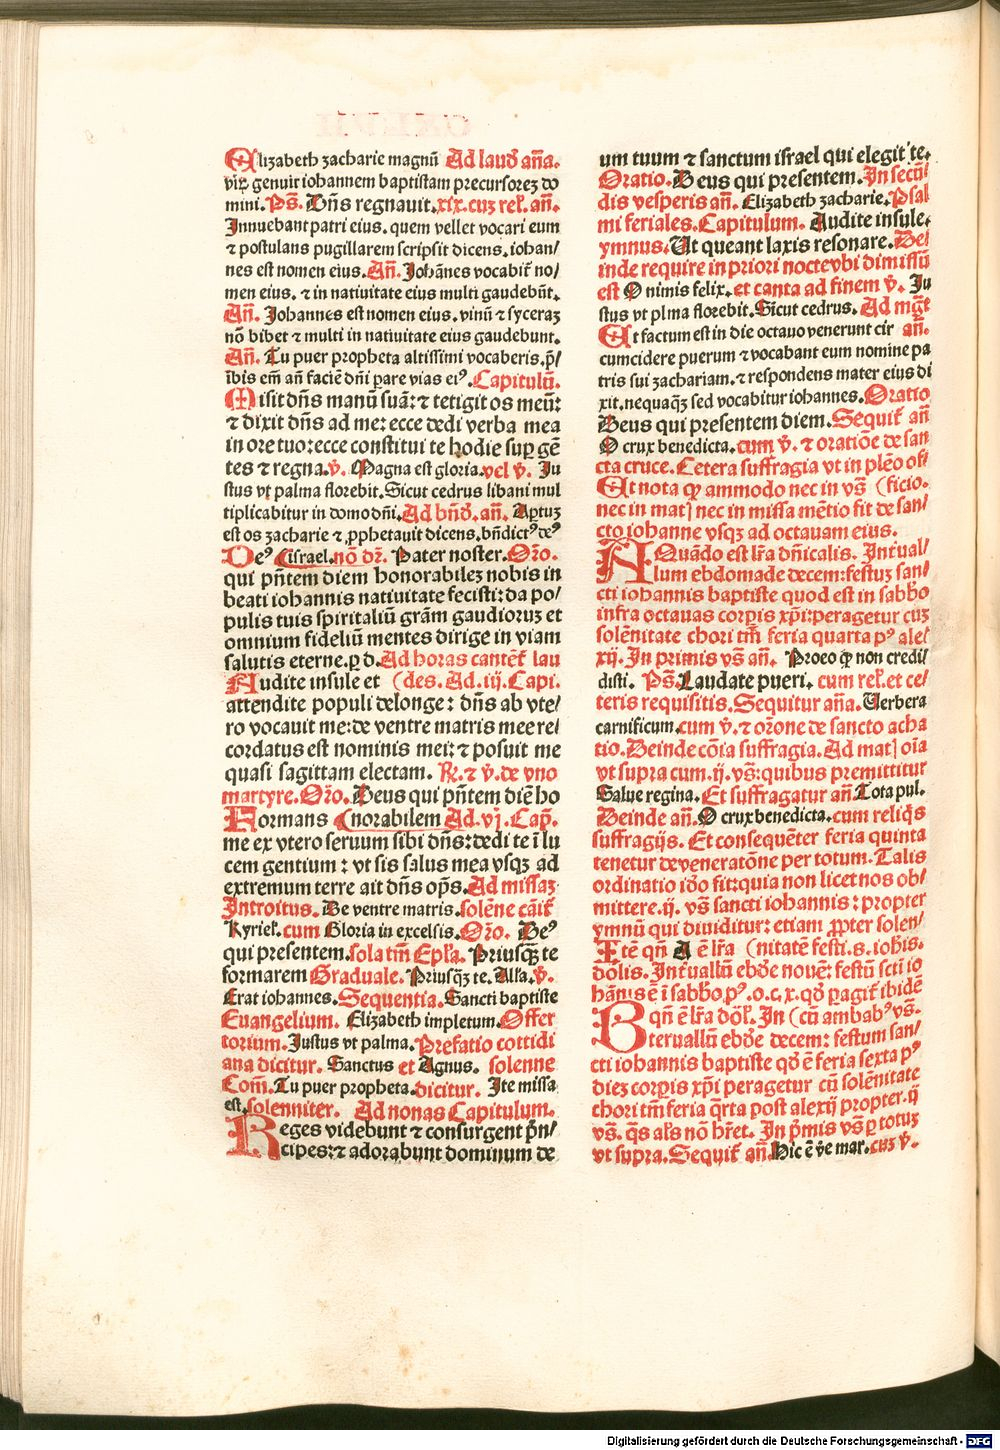 Elizabeth zacharie magnū Ad laud̄ aña.
vir genuit iohannem baptistam precursorez do
mini. Ps̄. Dn̄s regnauit. xix. cuz rel̄. añ.
Innuebant patri eius. quem vellet vocari eum
⁊ postulans pugillarem scripsit dicens. iohan/
nes est nomen eius. Añ. Johānes vocabit̄ no/
men eius. ⁊ in natiuitate eius multi gaudebūt.
Añ. Johannes est nomen eius. vinū ⁊ syceraz
nō bibet ⁊ multi in natiuitate eius gaudebunt.
Añ. Tu puer propheta altissimi vocaberis. p̄/
ibis em̄ añ faciē dn̄i pare vias eiꝰ. Capitulū.
Misit dn̄s manū suā: ⁊ tetigit os meū:
⁊ dixit dn̄s ad me: ecce dedi verba mea
in ore tuo: ecce constitui te hodie suꝑ gē
tes ⁊ regna. v̄. Magna est gloria. vel v̄. Ju
stus vt palma florebit. Sicut cedrus libani mul
tiplicabitur in domo dn̄i. Ad bn̄d̄. añ. Aptuz
est os zacharie ⁊ ꝓphetauit dicens. bn̄dictꝰ deꝰ
Deꝰ (israel. nō dr̄. Pater noster. Or̄o.
qui pn̄tem diem honorabilez nobis in
beati iohannis natiuitate fecisti: da po/
pulis tuis spiritaliū grām gaudioruz et
omnium fideliū mentes dirige in viam
salutis eterne. ꝑ d. Ad horas cantēt̄ lau
Audite insule et (des. Ad. iij. Capi.
attendite populi delonge: dn̄s ab vte/
ro vocauit me: de ventre matris mee re/
cordatus est nominis mei: ⁊ posuit me
quasi sagittam electam. R̄. ⁊ v̄. de vno
martyre. Or̄o. Deus qui pn̄tem diē ho
Formans (norabilem Ad. vj. Cap̄.
me ex vtero seruum sibi dn̄s: dedi te ī lu
cem gentium: vt sis salus mea vsqz ad
extremum terre ait dn̄s op̄s. Ad missaz
Introitus. De ventre matris. solēne cāit̄
Kyriel̄. cum Gloria in excelsis. Or̄o. Deꝰ
qui presentem. sola tm̄ Ep̄la. Priusq̄z te
formarem Graduale. Priusq̄z te. All̄a. v̄.
Erat iohannes. Sequentia. Sancti baptiste
Euangelium. Elizabeth impletum. Offer
torium. Justus vt palma. Prefatio cottidi
ana dicitur. Sanctus et Agnus. solenne
Com̄. Tu puer propheta. dicitur. Ite missa
est. solenniter. Ad nonas Capitulum.
Reges videbunt ⁊ consurgent p̄n/
cipes: ⁊ adorabunt dominum de
um tuum ⁊ sanctum israel qui elegit te.
Oratio. Deus qui presentem. In secū/
dis vesperis añ. Elizabeth zacharie. Psal
mi feriales. Capitulum. Audite insule.
ymnus. Ut queant laxis resonare. De/
inde require in priori nocte vbi dimissū
est O nimis felix. et canta ad finem v̄. Ju
stus vt plma florebit. Sicut cedrus. Ad mg̅t
Et factum est in die octauo venerunt cir añ.
cumcidere puerum ⁊ vocabant eum nomine pa
tris sui zachariam. ⁊ respondens mater eius di
xit. nequaq̄z sed vocabitur iohannes. Oratio
Deus qui presentem diem. Sequit̄ añ
O crux benedicta. cum v̄. ⁊ oratiōe de san
cta cruce. Cetera suffragia vt in plēo of/
Et nota ꝙ ammodo nec in vs̄ (ficio.
nec in mat̄ nec in missa mētio fit de san/
cto iohanne vsqz ad octauam eius.
A Quādo est lr̄a dn̄icalis. Int̄ual/
lum ebdomade decem: festuz san/
cti iohannis baptiste quod est in sabb̄o
infra octauas corpꝭs xp̄i: peragetur cuz
solēnitate chori tm̄ feria quarta pꝰ ale/
xij. In primis vs̄ añ. Proeo ꝙ non credi/
disti. Ps̄. Laudate pueri. cum rel̄. et ce/
teris requisitis. Sequitur aña. Verbera
carnificum. cum v̄. ⁊ or̄one de sancto acha
tio. Deinde cōia suffragia. Ad mat̄ oīa
vt supra cum. ij. vs̄: quibus premittitur
Salue regina. Et suffragatur añ Tota pul.
Deinde añ. O crux benedicta. cum reliq̄s
suffragijs. Et consequēter feria quinta
tenetur de veneratōne per totum. Talis
ordinatio id̄o fit: quia non licet nos ob/
mittere. ij. vs̄ sancti iohannis: propter
ymnū qui diuiditur: etiam ꝓpter solen/
Ttē qn̄ A ē lr̄a (nitatē festi. s. iohis.
dō̄lis. Int̄uallū ebd̄e nouē: festū scti io
hān̄is ē ī sabb̄o. pꝰ. o. c. x. qd̄ pagit̄ ibidē
B qn̄ ē lr̄a dō̄l. In (cū ambabꝰ vs̄.
teruallū ebd̄e decem: festum san/
cti iohannis baptiste qd̄ ē feria sexta pꝰ
diez corpis xp̄i peragetur cū solēnitate
chori tm̄ feria q̄rta post alexij propter. ij
vs̄. q̄s al̄s nō hr̄et. In p̄mis vs̄ ꝑ totuz
vt supra. Sequit̄ añ. Hic ē v̄e mar. cuz v̄.
Digitalisierung gefördert durch die Deutsche Forschungsgemeinschaft - DFG